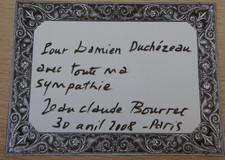 Pour Damien Duchézeau
avec toute ma
sympathie
Jean Claude Bourret
30 avril 2008 - Paris